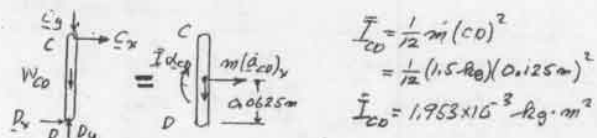 Cy
C
Cx
W_CD
Dx
D
Dy
=
C
Ī α_CD
m(ā_CD)x
0.0625m
D
Ī_CD = 1/12 m (CD)²
= 1/12 (1.5 kg)(0.125m)²
Ī_CD = 1.953×10⁻³ kg·m²